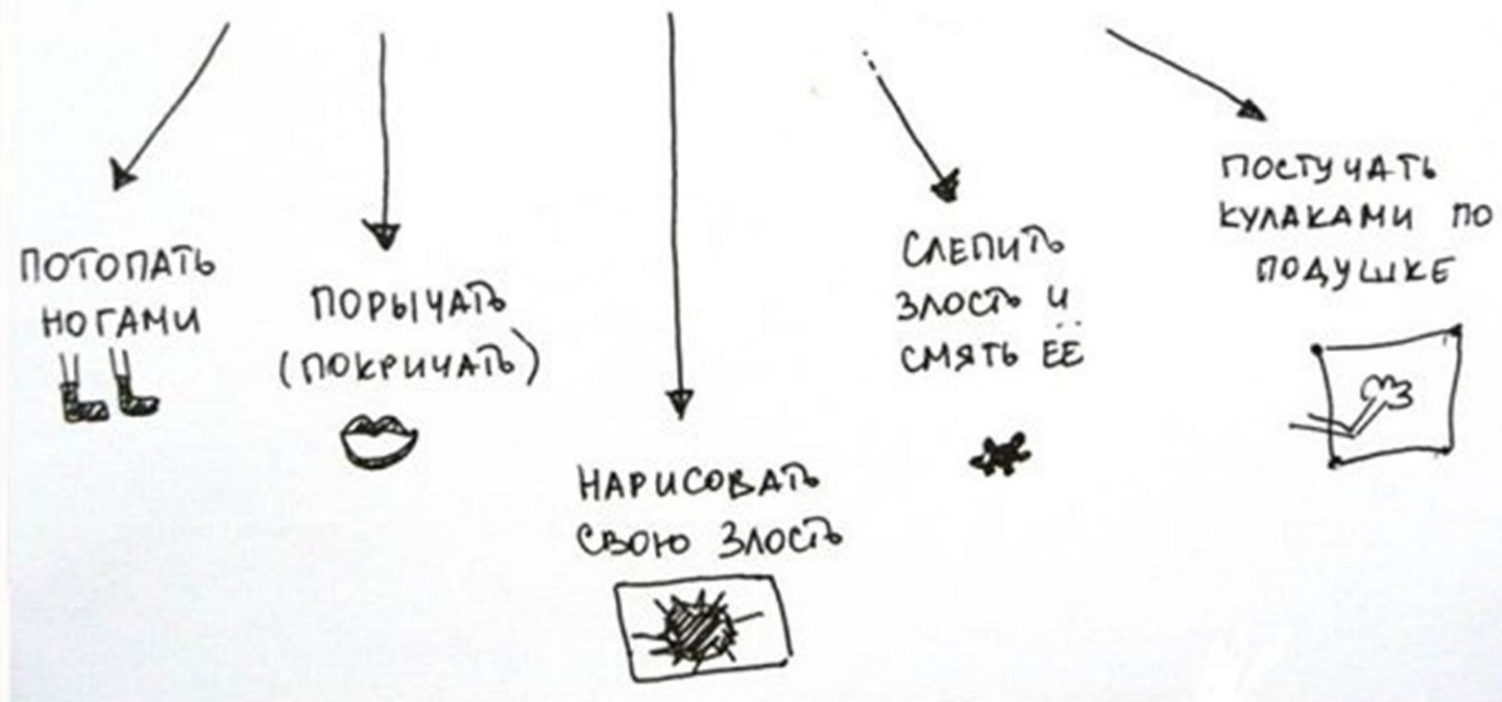 ПОТОПАТЬ
НОГАМИ
ПОРЫЧАТЬ
(ПОКРИЧАТЬ)
НАРИСОВАТЬ
СВОЮ ЗЛОСТЬ
СЛЕПИТЬ
ЗЛОСТЬ И
СМЯТЬ ЕЁ
ПОСТУЧАТЬ
КУЛАКАМИ ПО
ПОДУШКЕ